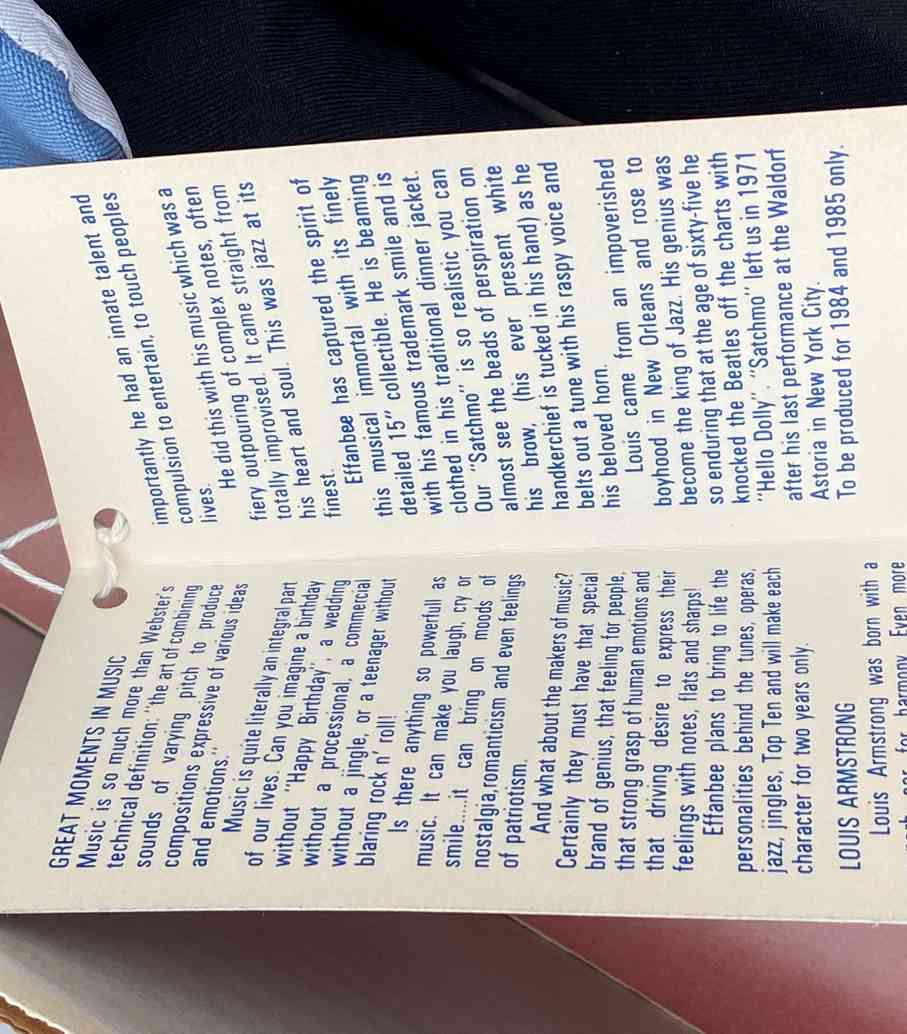 GREAT MOMENTS IN MUSIC
Music is so much more than Webster's
technical definition: "the art of combining
sounds of varying pitch to produce
compositions expressive of various ideas
and emotions."
Music is quite literally an integral part
of our lives. Can you imagine a birthday
without "Happy Birthday", a wedding
without a processional, a commercial
without a jingle, or a teenager without
blaring rock n' roll!
Is there anything so powerfull as
music. It can make you laugh, cry or
smile.....it can bring on moods of
nostalgia,romanticism and even feelings
of patriotism.
And what about the makers of music?
Certainly they must have that special
brand of genius, that feeling for people,
that strong grasp of human emotions and
that driving desire to express their
feelings with notes, flats and sharps!
Effanbee plans to bring to life the
personalities behind the tunes, operas,
jazz, jingles, Top Ten and will make each
character for two years only.
LOUIS ARMSTRONG
Louis Armstrong was born with a
ear for harmony. Even more
importantly he had an innate talent and
compulsion to entertain, to touch peoples
lives.
He did this with his music which was a
fiery outpouring of complex notes, often
totally improvised. It came straight from
his heart and soul. This was jazz at its
finest.
Effanbee has captured the spirit of
this musical immortal with its finely
detailed 15" collectible. He is beaming
with his famous trademark smile and is
clothed in his traditional dinner jacket.
Our "Satchmo" is so realistic you can
almost see the beads of perspiration on
his brow, (his ever present white
handkerchief is tucked in his hand) as he
belts out a tune with his raspy voice and
his beloved horn.
Louis came from an impoverished
boyhood in New Orleans and rose to
become the king of Jazz. His genius was
so enduring that at the age of sixty-five he
knocked the Beatles off the charts with
"Hello Dolly". "Satchmo" left us in 1971
after his last performance at the Waldorf
Astoria in New York City.
To be produced for 1984 and 1985 only.